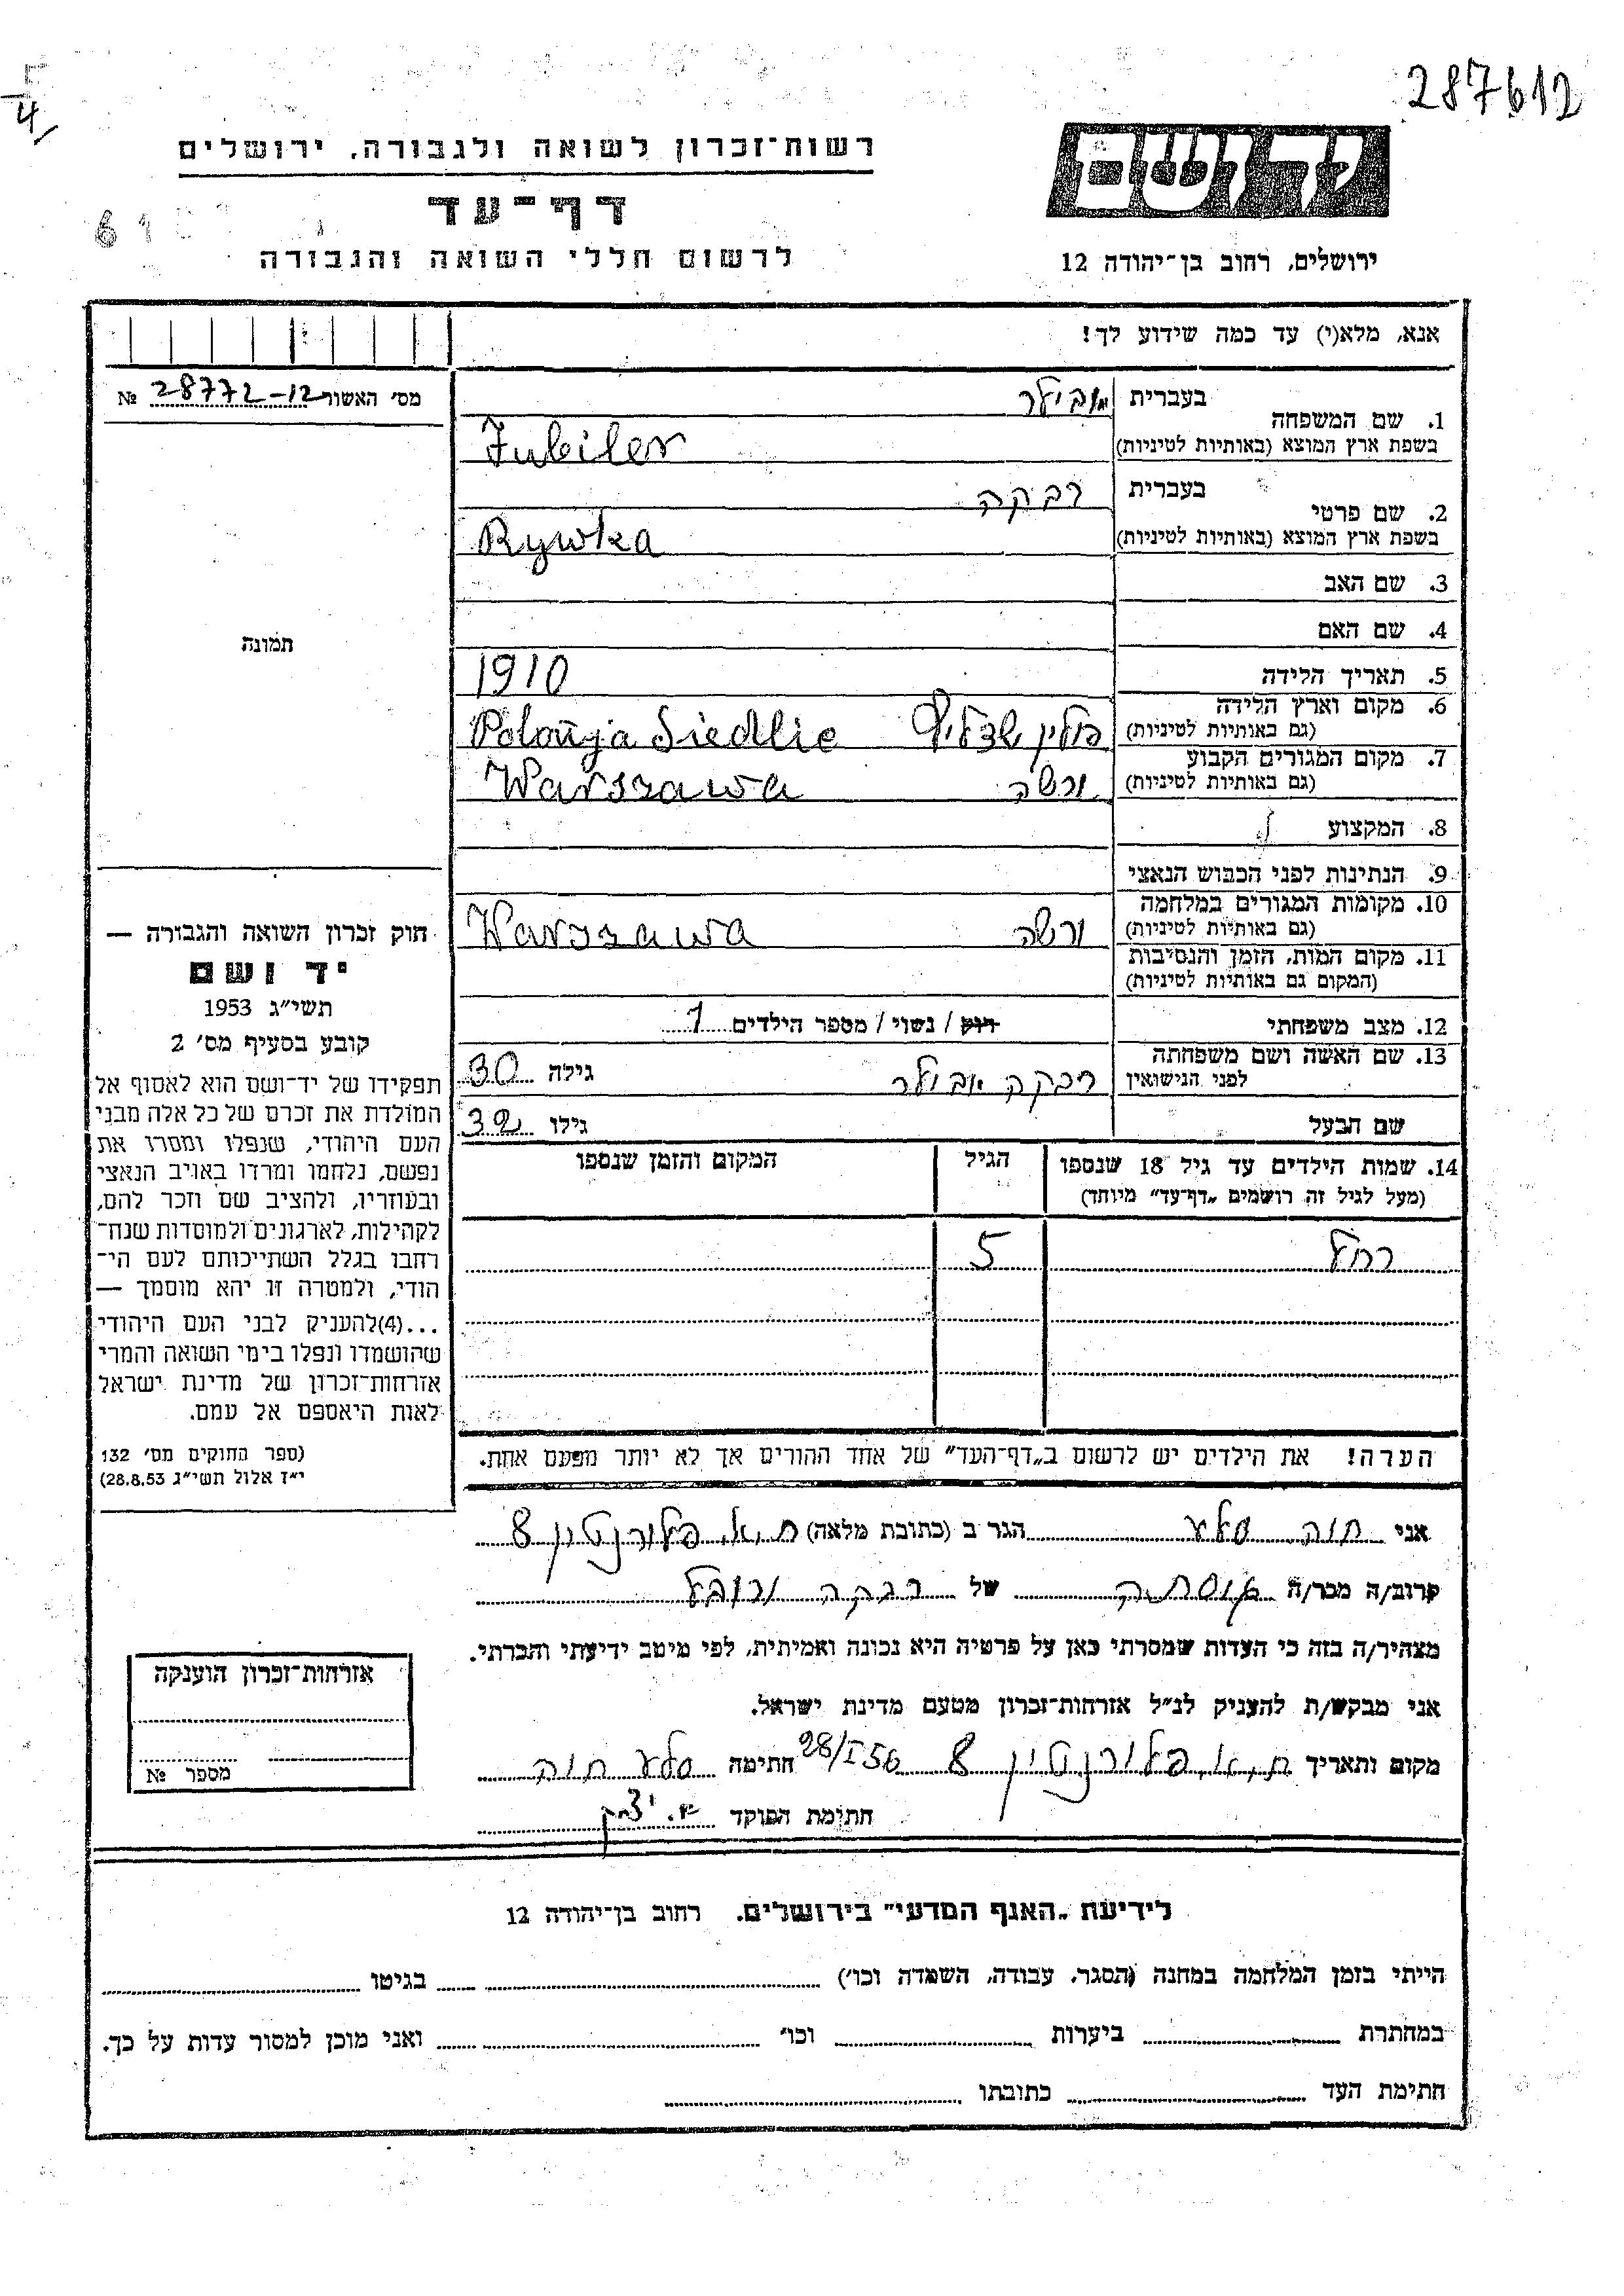 287612
4
רשות־זכרון לשואה ולגבורה, ירושלים
דף־עד
לרשום חללי השואה והגבורה
יד ושם
ירושלים, רחוב בן־יהודה 12
אנא, מלא(י) עד כמה שידוע לך!
מס׳ האשור 28772-12 №
1. שם המשפחה
בעברית יוביلר
בשפת ארץ המוצא (באותיות לטיניות) Jubiler
2. שם פרטי
בעברית רבקה
בשפת ארץ המוצא (באותיות לטיניות) Rywka
3. שם האב
4. שם האם
5. תאריך הלידה 1910
6. מקום וארץ הלידה
(גם באותיות לטיניות) פולין שדליץ Polonja Siedlie
7. מקום המגורים הקבוע
(גם באותיות לטיניות) ורשה Warszawa
8. המקצוע
9. הנתינות לפני הכבוש הנאצי
10. מקומות המגורים במלחמה
(גם באותיות לטיניות) ורשה Warszawa
11. מקום המות, הזמן והנסיבות
(המקום גם באותיות לטיניות)
12. מצב משפחתי רוק / נשוי / מספר הילדים 1
13. שם האשה ושם משפחתה
לפני הנישואין רבקה יובילר גילה 30
שם הבעל גילו 32
14. שמות הילדים עד גיל 18 שנספו
(מעל לגיל זה רושמים „דף־עד״ מיוחד)
הגיל
המקום והזמן שנספו
רחל 5
הערה! את הילדים יש לרשום ב„דף־העד״ של אחד ההורים אך לא יותר מפעם אחת.
תמונה
חוק זכרון השואה והגבורה —
יד ושם
תשי״ג 1953
קובע בסעיף מס׳ 2
תפקידו של יד־ושם הוא לאסוף אל
המולדת את זכרם של כל אלה מבני
העם היהודי, שנפלו ומסרו את
נפשם, נלחמו ומרדו באויב הנאצי
ובעוזריו, ולהציב שם וזכר להם,
לקהילות, לארגונים ולמוסדות שנח־
רבו בגלל השתייכותם לעם הי־
הודי, ולמטרה זו יהא מוסמך —
...(4)להעניק לבני העם היהודי
שהושמדו ונפלו בימי השואה והמרי
אזרחות־זכרון של מדינת ישראל
לאות היאספם אל עמם.
(ספר החוקים מס׳ 132
י״ז אלול תשי״ג 28.8.53)
אני חוה סלע הגר ב (כתובת מלאה) ת.א. פלורנטין 8
קרוב/ה מכר/ה של רבקה
מצהיר/ה בזה כי העדות שמסרתי כאן על פרטיה היא נכונה ואמיתית, לפי מיטב ידיעתי והכרתי.
אני מבקש/ת להעניק לנ״ל אזרחות־זכרון מטעם מדינת ישראל.
מקום ותאריך ת.א. פלורנטין 8 28/I 56 חתימה סלע חוה
חתימת הפוקד
אזרחות־זכרון הוענקה
מספר №
לידיעת „האגף המדעי״ בירושלים, רחוב בן־יהודה 12
הייתי בזמן המלחמה במחנה (הסגר, עבודה, השמדה וכו׳) בגיטו
במחתרת ביערות וכו׳ ואני מוכן למסור עדות על כך.
חתימת העד כתובתו